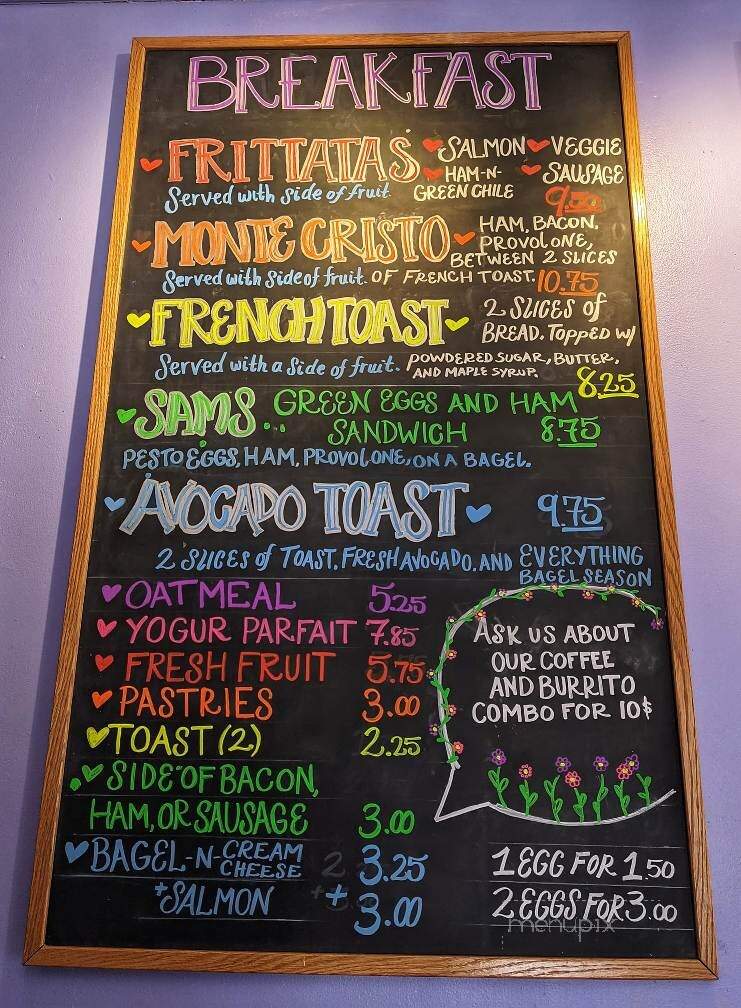 BREAKFAST
FRITTATAS ♥ SALMON ♥ VEGGIE
♥ HAM-N- ♥ SAUSAGE
Served with side of fruit. GREEN CHILE
9.50
MONTE CRISTO ♥ HAM, BACON,
PROVOLONE,
BETWEEN 2 SLICES
Served with side of fruit. OF FRENCH TOAST. 10.75
FRENCH TOAST 2 SLICES of
BREAD. TOPPED W/
Served with a side of fruit. POWDERED SUGAR, BUTTER,
AND MAPLE SYRUP. 8.25
SAMS... GREEN EGGS AND HAM
SANDWICH 8.75
PESTO EGGS, HAM, PROVOLONE, ON A BAGEL.
AVOCADO TOAST 9.75
2 SLICES of TOAST. FRESH AVOCADO. AND EVERYTHING
BAGEL SEASON
OATMEAL 5.25
YOGUR PARFAIT 7.85
FRESH FRUIT 5.75
PASTRIES 3.00
TOAST (2) 2.25
SIDE OF BACON,
HAM, OR SAUSAGE 3.00
BAGEL-N-CREAM
CHEESE 3.25
+SALMON + 3.00
ASK US ABOUT
OUR COFFEE
AND BURRITO
COMBO FOR 10$
1 EGG FOR 1.50
2 EGGS FOR 3.00
menupix